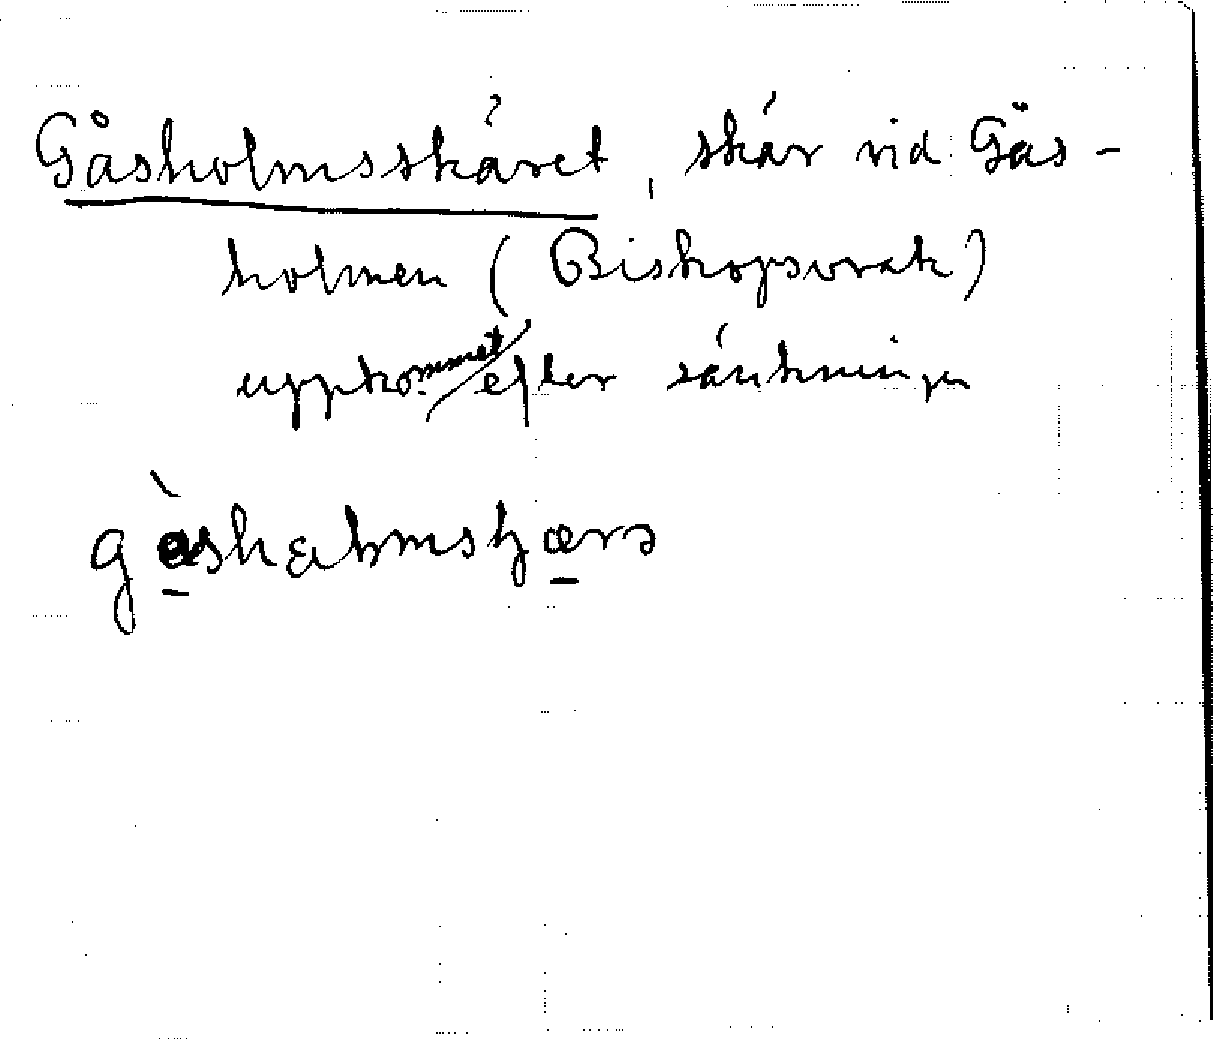 Gåsholmsskäret, skär vid Gås-
holmen (Biskopsvrak)
uppkommet efter sänkningen